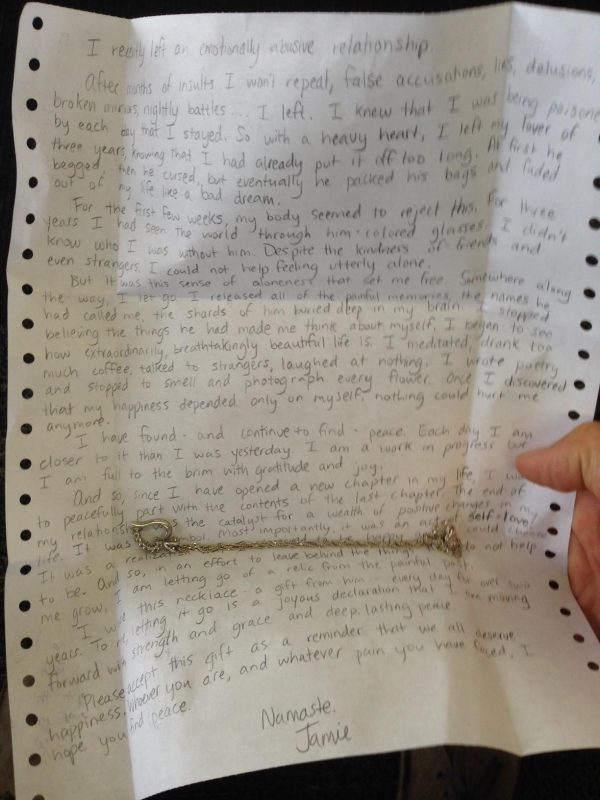 I recently left an emotionally abusive relationship.
After months of insults I won't repeat, false accusations, lies, delusions,
broken mirrors, nightly battles... I left. I knew that I was being poisoned
by each day that I stayed. So with a heavy heart, I left my lover of
three years, knowing that I had already put it off too long. At first he
begged, then he cursed, but eventually he packed his bags and faded
out of my life like a bad dream.
For the first few weeks, my body seemed to reject this. For three
years I had seen the world through him-colored glasses. I didn't
know who I was without him. Despite the kindness of friends and
even strangers, I could not help feeling utterly alone.
But it was this sense of aloneness that set me free. Somewhere along
the way, I let go. I released all of the painful memories, the names he
had called me, the shards of him buried deep in my brain. I stopped
believing the things he had made me think about myself. I began to see
how extraordinarily, breathtakingly beautiful life is. I meditated, drank too
much coffee, talked to strangers, laughed at nothing. I wrote poetry
and stopped to smell and photograph every flower. Once I discovered
that my happiness depended only on myself, nothing could hurt me
anymore.
I have found - and continue to find - peace. Each day I am
closer to it than I was yesterday. I am a work in progress but
I am full to the brim with gratitude and joy.
And so, since I have opened a new chapter in my life, I want
to peacefully part with the contents of the last chapter. The end of
my relationship was the catalyst for a wealth of positive changes in my
life. It was a symbol. Most importantly, it was an act of self-love.
It was a realization I could choose
to be. And so, in an effort to leave behind the things do not help
me grow, I am letting go of a relic from the painful past.
I wore this necklace - a gift from him - every day for over two
years. To me, letting it go is a joyous declaration that I am moving
forward with strength and grace and deep, lasting peace.
Please accept this gift as a reminder that we all deserve
happiness. Whoever you are, and whatever pain you have faced, I
hope you find peace.
Namaste.
Jamie